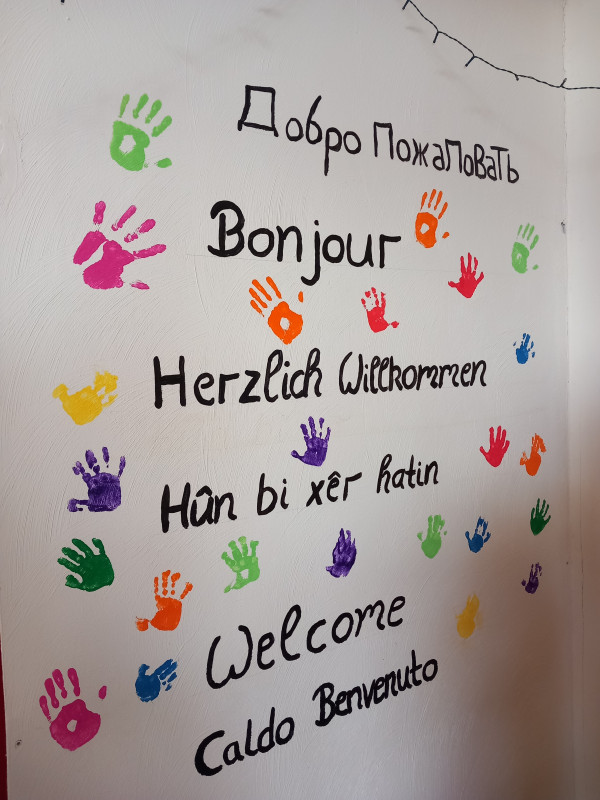 Добро пожаловать
Bonjour
Herzlich Willkommen
Hûn bi xêr hatin
Welcome
Caldo Benvenuto